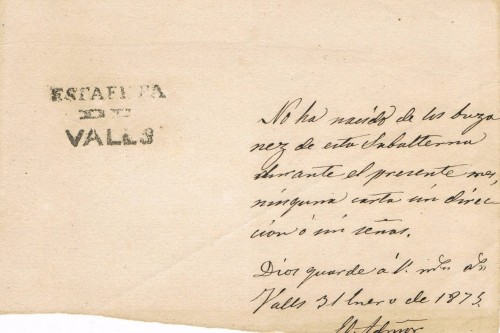 ESTAFETA
DE
VALLS
No ha nacido de los buzo
nez de esta Subalterna
durante el presente mes,
ninguna carta sin direc
cion ó sin señas.
Dios guarde á V. m.s a.s
Valls 31 Enero de 1875.
El Admor